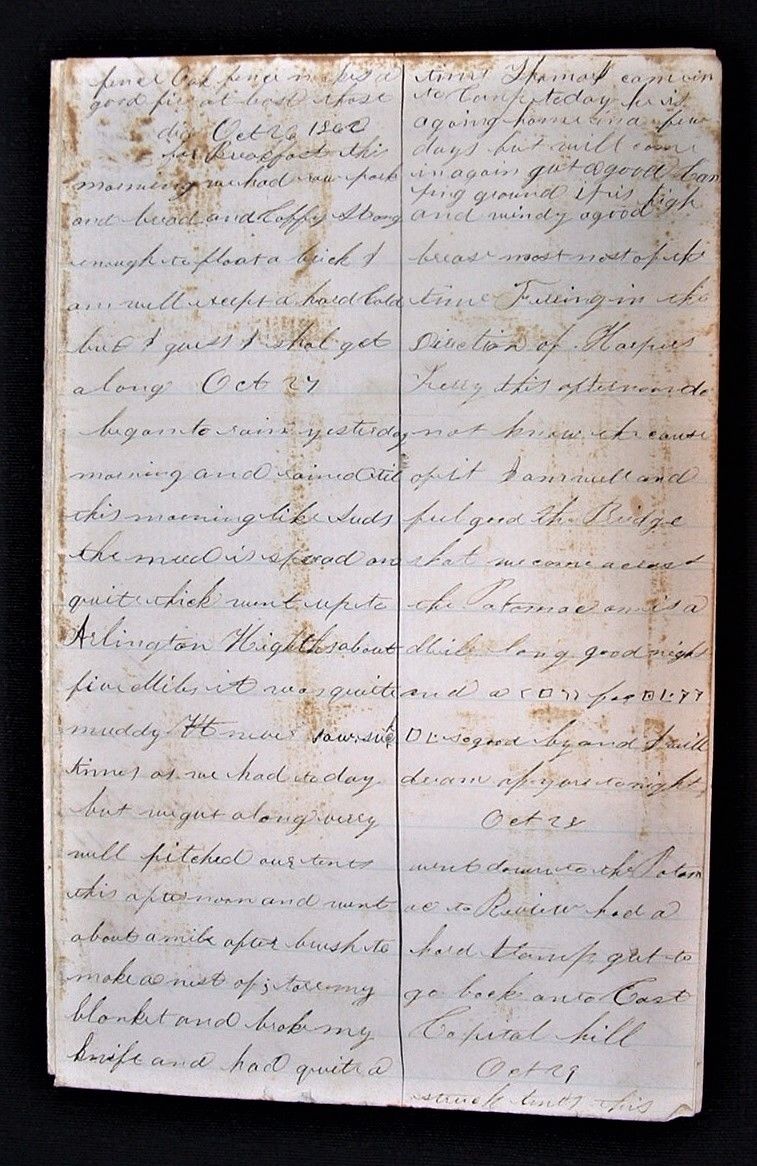 fence Oak fence makes a
good fire at best those
dig Oct 26 1862
for Breakfast this
morning we had raw pork
and bread and Coffy Strong
enough to float a brick I
am well except a hard Cold
but I guess I shal get
along Oct 27
began to rain yesterday
morning and rained til
this morning like Suds
the mud is spread on
quite thick went up to
Arlington Highths about
five Miles it was quite
muddy I never saw such
times as we had today
but we gut along verry
well pitched our tents
this afternoon and went
about a mile after brush to
make a nest of; tore my
blanket and broke my
knife and had quite a
time Thomas came in
to Camp today he is
agoing home in a few
days but will come
in again gut a good Cam
ping ground it is high
and windy a good
breas most most of the
time Fireing in the
Direction of Harpers
Ferry this afternoon do
not know the cause
of it I am well and
feel good The Bridge
that we come acrost
the Potomac on is a
Mile long good night
and a for
so good by and I will
dream of you to night
Oct 28
went down to the Potom
ac to Review had a
hard tramp gut to
go back on to East
Capital hill
Oct 29
struck tents this